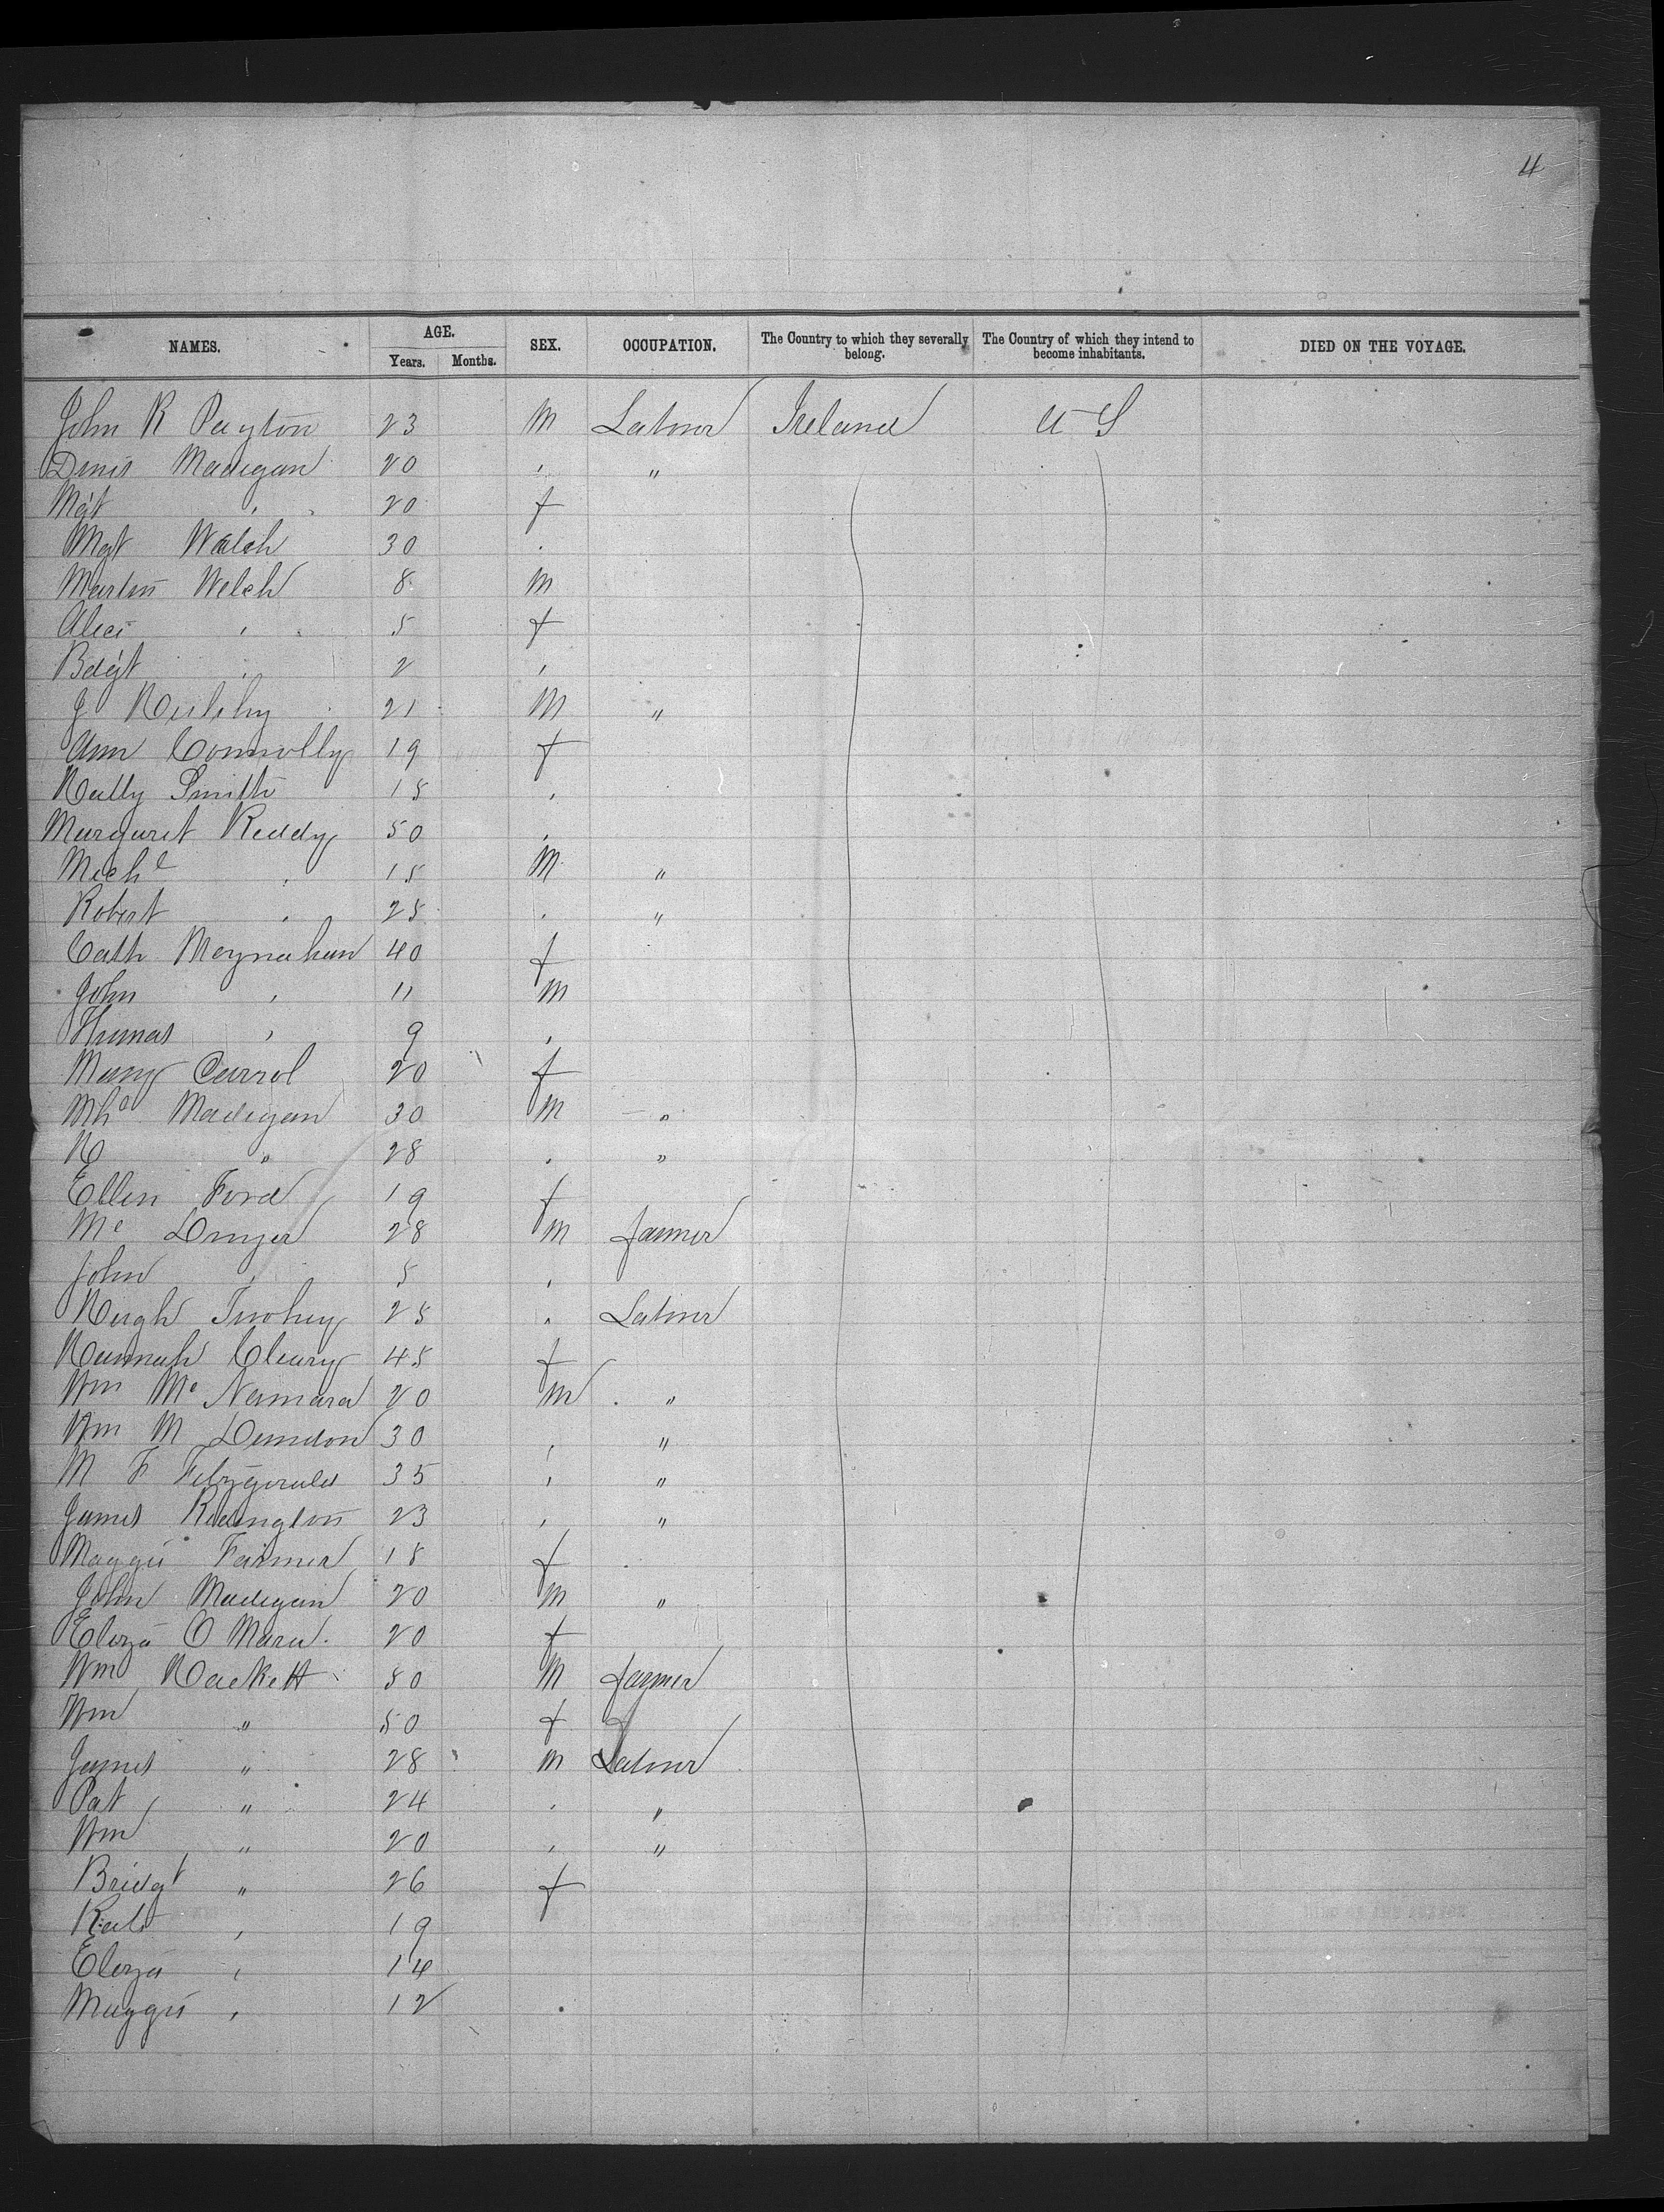 4
NAMES. AGE. Years. Months. SEX. OCCUPATION. The Country to which they severally belong. The Country of which they intend to become inhabitants. DIED ON THE VOYAGE.
John R Payton 23 M Labour Ireland U S
Denis Madigan 20 " "
Mgt " 20 f
Mgt Walsh 30 "
Martin Welch 8 M
Alice " 5 f
Bdgt " 2 "
J 21 M "
Ann Connolly 19 f
Smith 18 "
Margaret Reddy 50 "
Michl " 15 M "
Robert " 25 " "
Cath Moynahan 40 f
John " 11 M
Thomas " 9 "
Mary Carrol 20 f
Mhl Madigan 30 M "
" 28 " "
Ellen Ford 19 f
Mc Dwyer 28 M farmer
John " 5 "
Hugh Twohey 25 " Labour
Hannah Cleary 45 f
Wm Mc Namara 20 M "
Wm M Dundon 30 " "
M F Fitzgerald 35 " "
James Redington 23 " "
Maggie Farmer 18 f
John Madigan 20 M "
Eliza O Mara 20 f
Wm Hackett 50 M farmer
Wm " 50 f
James " 28 M Labour
Pat " 24 " "
Wm " 20 " "
Bridgt " 26 f
Kate " 19
Eliza " 14
Maggie " 12 "